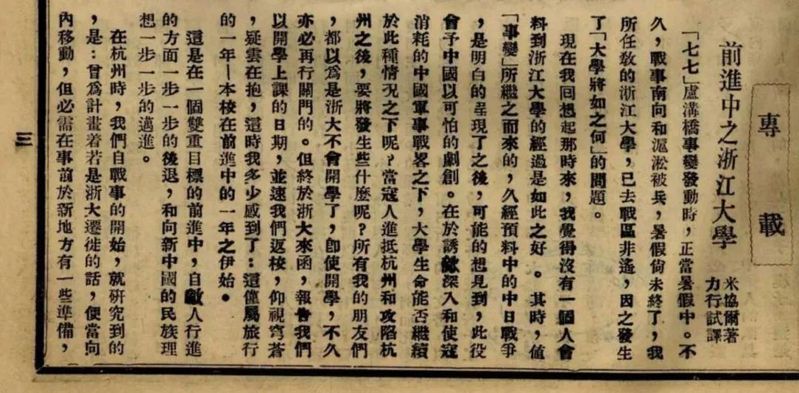 專載
前進中之浙江大學
米協爾著
力行試譯
「七七」盧溝橋事變發動時，正當暑假中。不
久，戰事南向和滬淞被兵，暑假倘未終了，我
所任敎的浙江大學，已去戰區非遙，因之發生
了「大學將如之何」的問題。
現在我回想起那時來，我覺得沒有一個人會
料到浙江大學的經過是如此之好。其時，値
「事變」所繼之而來的，久經預料中的中日戰爭
，是明白的呈現了之後，可能的想見到，此役
會予中國以可怕的劇創。在於誘敵深入和使寇
消耗的中國軍事戰畧之下，大學生命能否繼續
於此種情况之下呢？當寇人進抵杭州和攻陷杭
州之後，要將發生些什麼呢？所有我的朋友們
，都以爲是浙大不會開學了，卽使開學，不久
亦必再行關門的。但終於浙大來函，報吿我們
以開學上課的日期，並速我們返校，仰視穹蒼
，疑雲在抱，這時我多少感到了：這僅屬旅行
的一年—本校在前進中的一年之伊始。
這是在一個雙重目標的前進中，自敵人行進
的方面一步一步的後退，和向新中國的民族理
想一步一步的邁進。
在杭州時，我們自戰事的開始，就研究到的
，是：曾爲計畫着若是浙大遷徙的話，便當向
內移動，但必需在事前於新地方有一些準備，
三